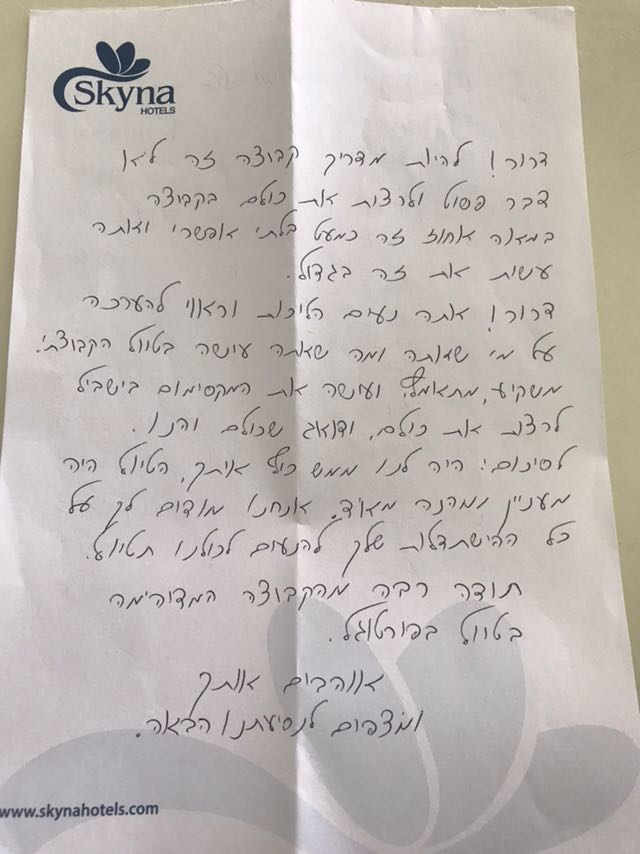 Skyna
HOTELS
דרור! להיות מדריך קבוצה זה לא
דבר פשוט ולרצות את כולם בקבוצה
במאה אחוז זה כמעט בלתי אפשרי ואתה
עשית את זה בגדול.
דרור! אתה נעים הליכות וראוי להערכה
על מי שאתה ומה שאתה עושה בטיול הקבוצתי.
משקיע, מתאמץ, ועושה את המקסימום בישביל
לרצות את כולם, ודואג שכולם יהנו.
לסיכום: היה לנו ממש כיף איתך, הטיול היה
מעניין ומהנה מאוד. אנחנו מודים לך על
כל ההישתדלות שלך להנעים לכולנו הטיול.
תודה רבה מהקבוצה המדהימה
בטיול בפורטוגל.
אוהבים אותך
ומצפים לנסיעתנו הבאה.
www.skynahotels.com